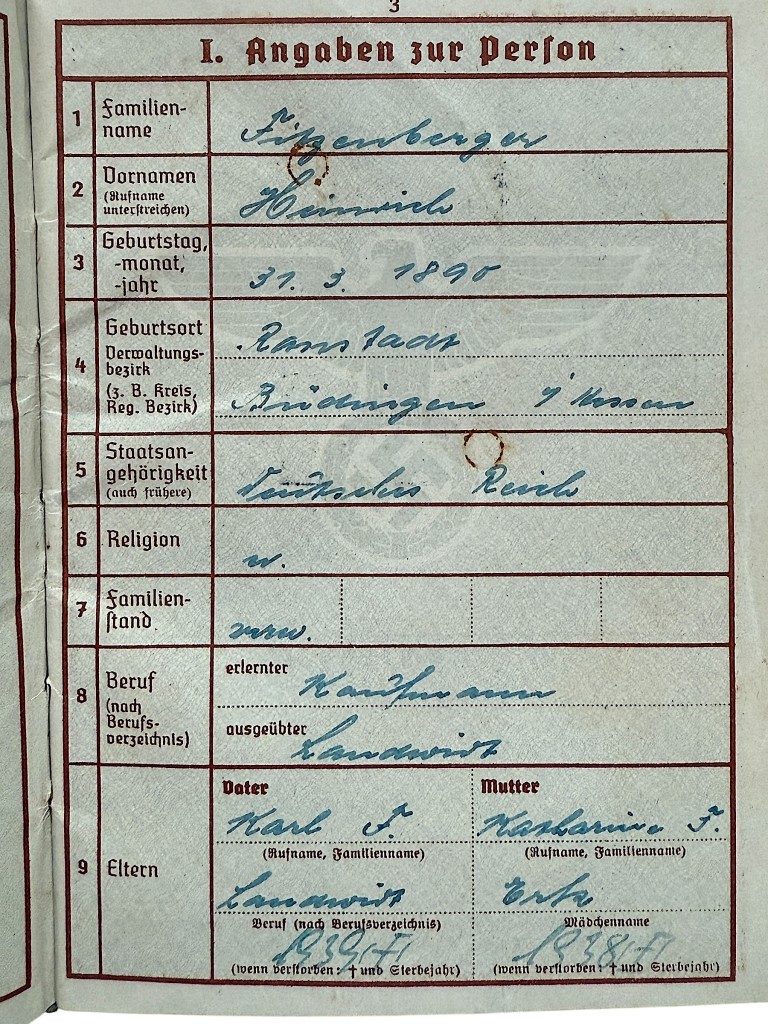 3
I. Angaben zur Person
1 Familien-
name
Fitzenberger
2 Vornamen
(Rufname
unterstreichen)
Heinrich
3 Geburtstag,
-monat,
-jahr
31. 3. 1890
4 Geburtsort
Ranstadt
Verwaltungs-
bezirk
(z. B. Kreis,
Reg. Bezirk)
Büdingen i/ Hessen
5 Staatsan-
gehörigkeit
(auch frühere)
Deutsches Reich
6 Religion
7 Familien-
stand
verw.
8 Beruf
(nach
Berufs-
verzeichnis)
erlernter
Kaufmann
ausgeübter
Landwirt
9 Eltern
Vater
Karl F.
(Rufname, Familienname)
Landwirt
Beruf (nach Berufsverzeichnis)
1939 †
(wenn verstorben: † und Sterbejahr)
Mutter
Katharina F.
(Rufname, Familienname)
Mädchenname
1938 †
(wenn verstorben: † und Sterbejahr)